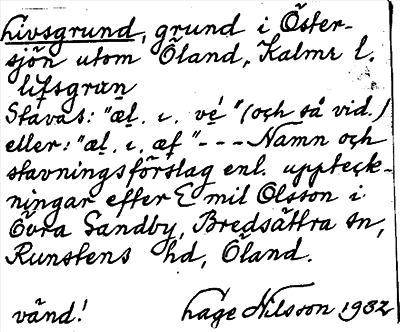 Livsgrund, grund i Öster-
sjön utom Öland, Kalmr l.
lifsgran
Stavas: "æl. ı. vé" (och så vid.)
eller: "æl. ı. æf" --- Namn och
stavningsförslag enl. uppteck-
ningar efter Emil Olsson i
Övra Sandby, Bredsättra sn,
Runstens hd, Öland.
vänd! Lage Nilsson 1932